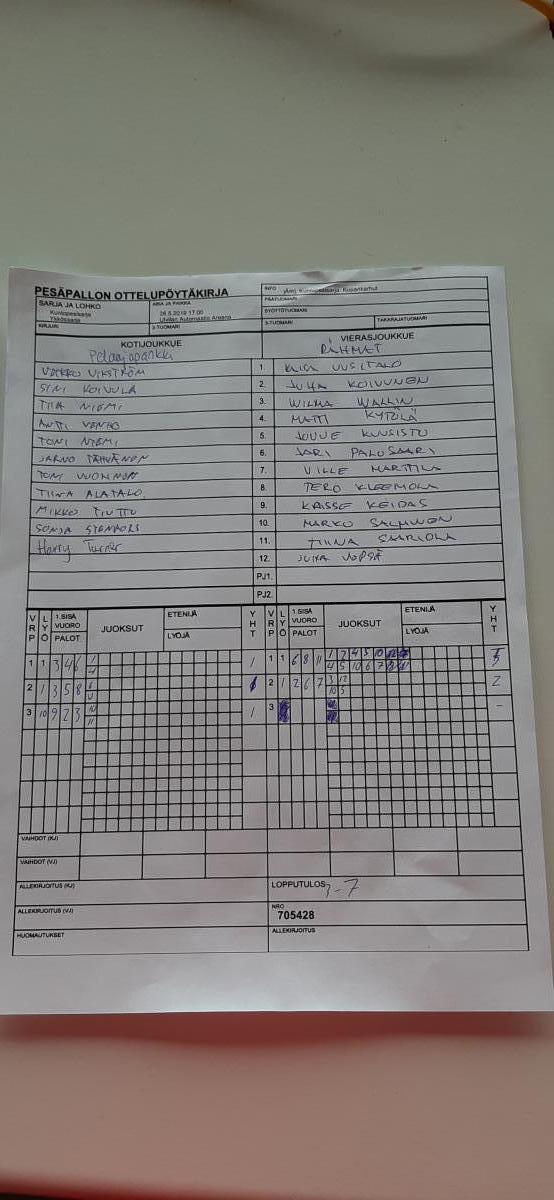 PESÄPALLON OTTELUPÖYTÄKIRJA
INFO
SARJA JA LOHKO
Kuntopesisarja
Ykkössarja
AIKA JA PAIKKA
28.5.2019 17:00
Ulvilan Automaatio Areena
PÄÄTUOMARI
SYÖTTÖTUOMARI
KIRJURI
2-TUOMARI
3-TUOMARI
TAKARAJATUOMARI
KOTIJOUKKUE
VIERASJOUKKUE
Pelaajapankki
RÄHMÄT
VEIKKO VIKSTRÖM 1. KAISA UUSITALO
SINI KOIVULA 2. JUHA KOIVUNEN
TIIA NIEMI 3. WILMA WALLIN
ANTTI VENHO 4. MATTI KYTÖLÄ
TONI NIEMI 5. KUUSISTO
JARNO TÄHVÄNEN 6. JARI PALOSAARI
TONI VUORINEN 7. VILLE MARTTILA
TIINA ALATALO 8. TERO KLEEMOLA
MIKKO TIUTTU 9. KRISSE KEIDAS
SONJA 10. MARKO SALMINEN
Harry Turner 11. TIINA SAARIOLA
12. JUKKA
PJ1.
PJ2.
VRP LYÖ 1.SISÄ VUORO PALOT JUOKSUT ETENIJÄ LYÖJÄ YHT VRP LYÖ 1.SISÄ VUORO PALOT JUOKSUT ETENIJÄ LYÖJÄ YHT
1 1 3 4 6 1 1 1 1 6 8 11 1 2 4 5 10
4 4 5 10 6 7
2 1 3 5 8 2 1 2 6 7 3 12 2
10 5
3 10 9 2 3 10 1 3 -
11
VAIHDOT (KJ)
VAIHDOT (VJ)
ALLEKIRJOITUS (KJ)
LOPPUTULOS -7
ALLEKIRJOITUS (VJ)
NRO
705428
HUOMAUTUKSET
ALLEKIRJOITUS